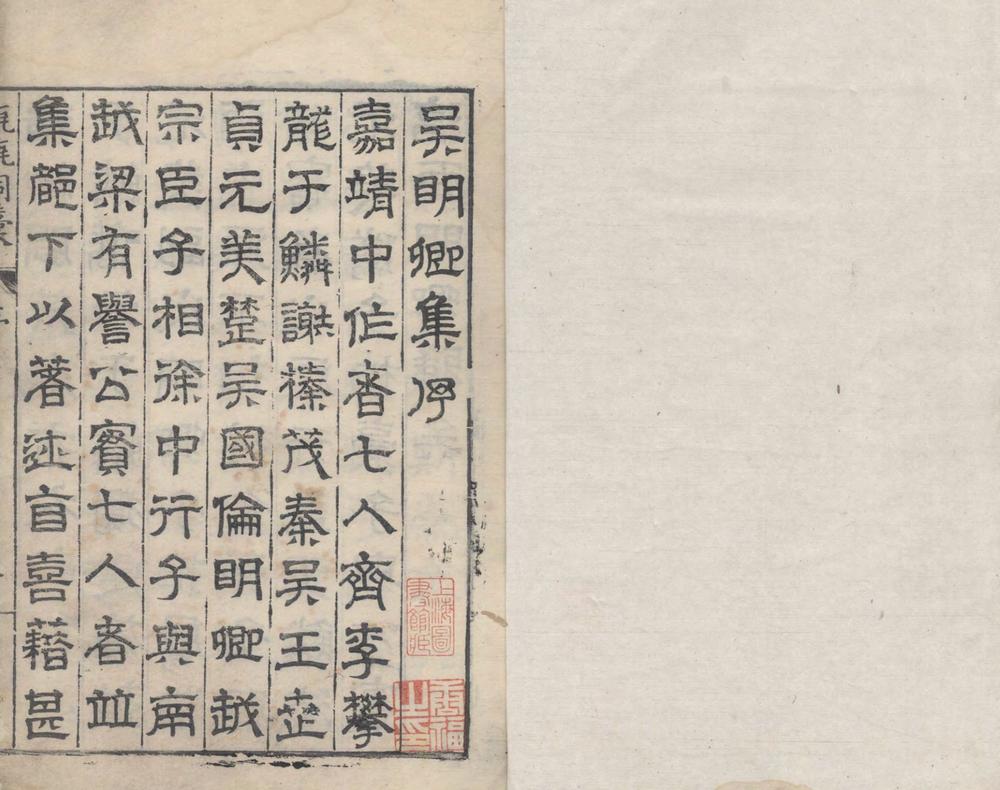 吳明卿集序
嘉靖中作者七人齊李攀
龍于鱗謝榛茂秦吳王世
貞元美楚吳國倫明卿越
宗臣子相徐中行子與南
越梁有譽公賓七人者竝
集都下以著述盲喜藉甚
上海圖書館藏